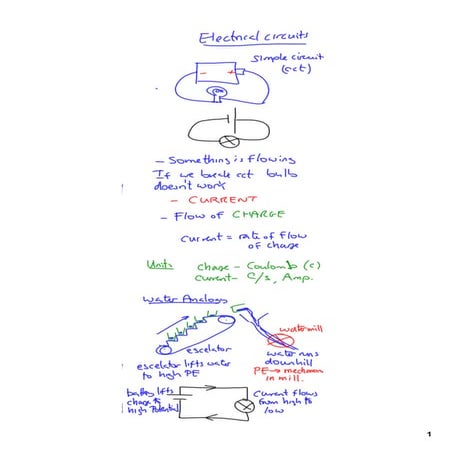 Electrical circuits
simple circuit
(cct)
- +
- Something is flowing
If we break cct bulb
doesn't work
- CURRENT
- Flow of CHARGE
current = rate of flow
of charge
Units charge - Coulomb (C)
current - C/s, Amp.
Water Analogy
watermill
escalator
water runs
downhill
escelator lifts water
to high PE
PE → mechanism
in mill.
battery lifts
charge to
high Potential
Current flows
from high to
low
1